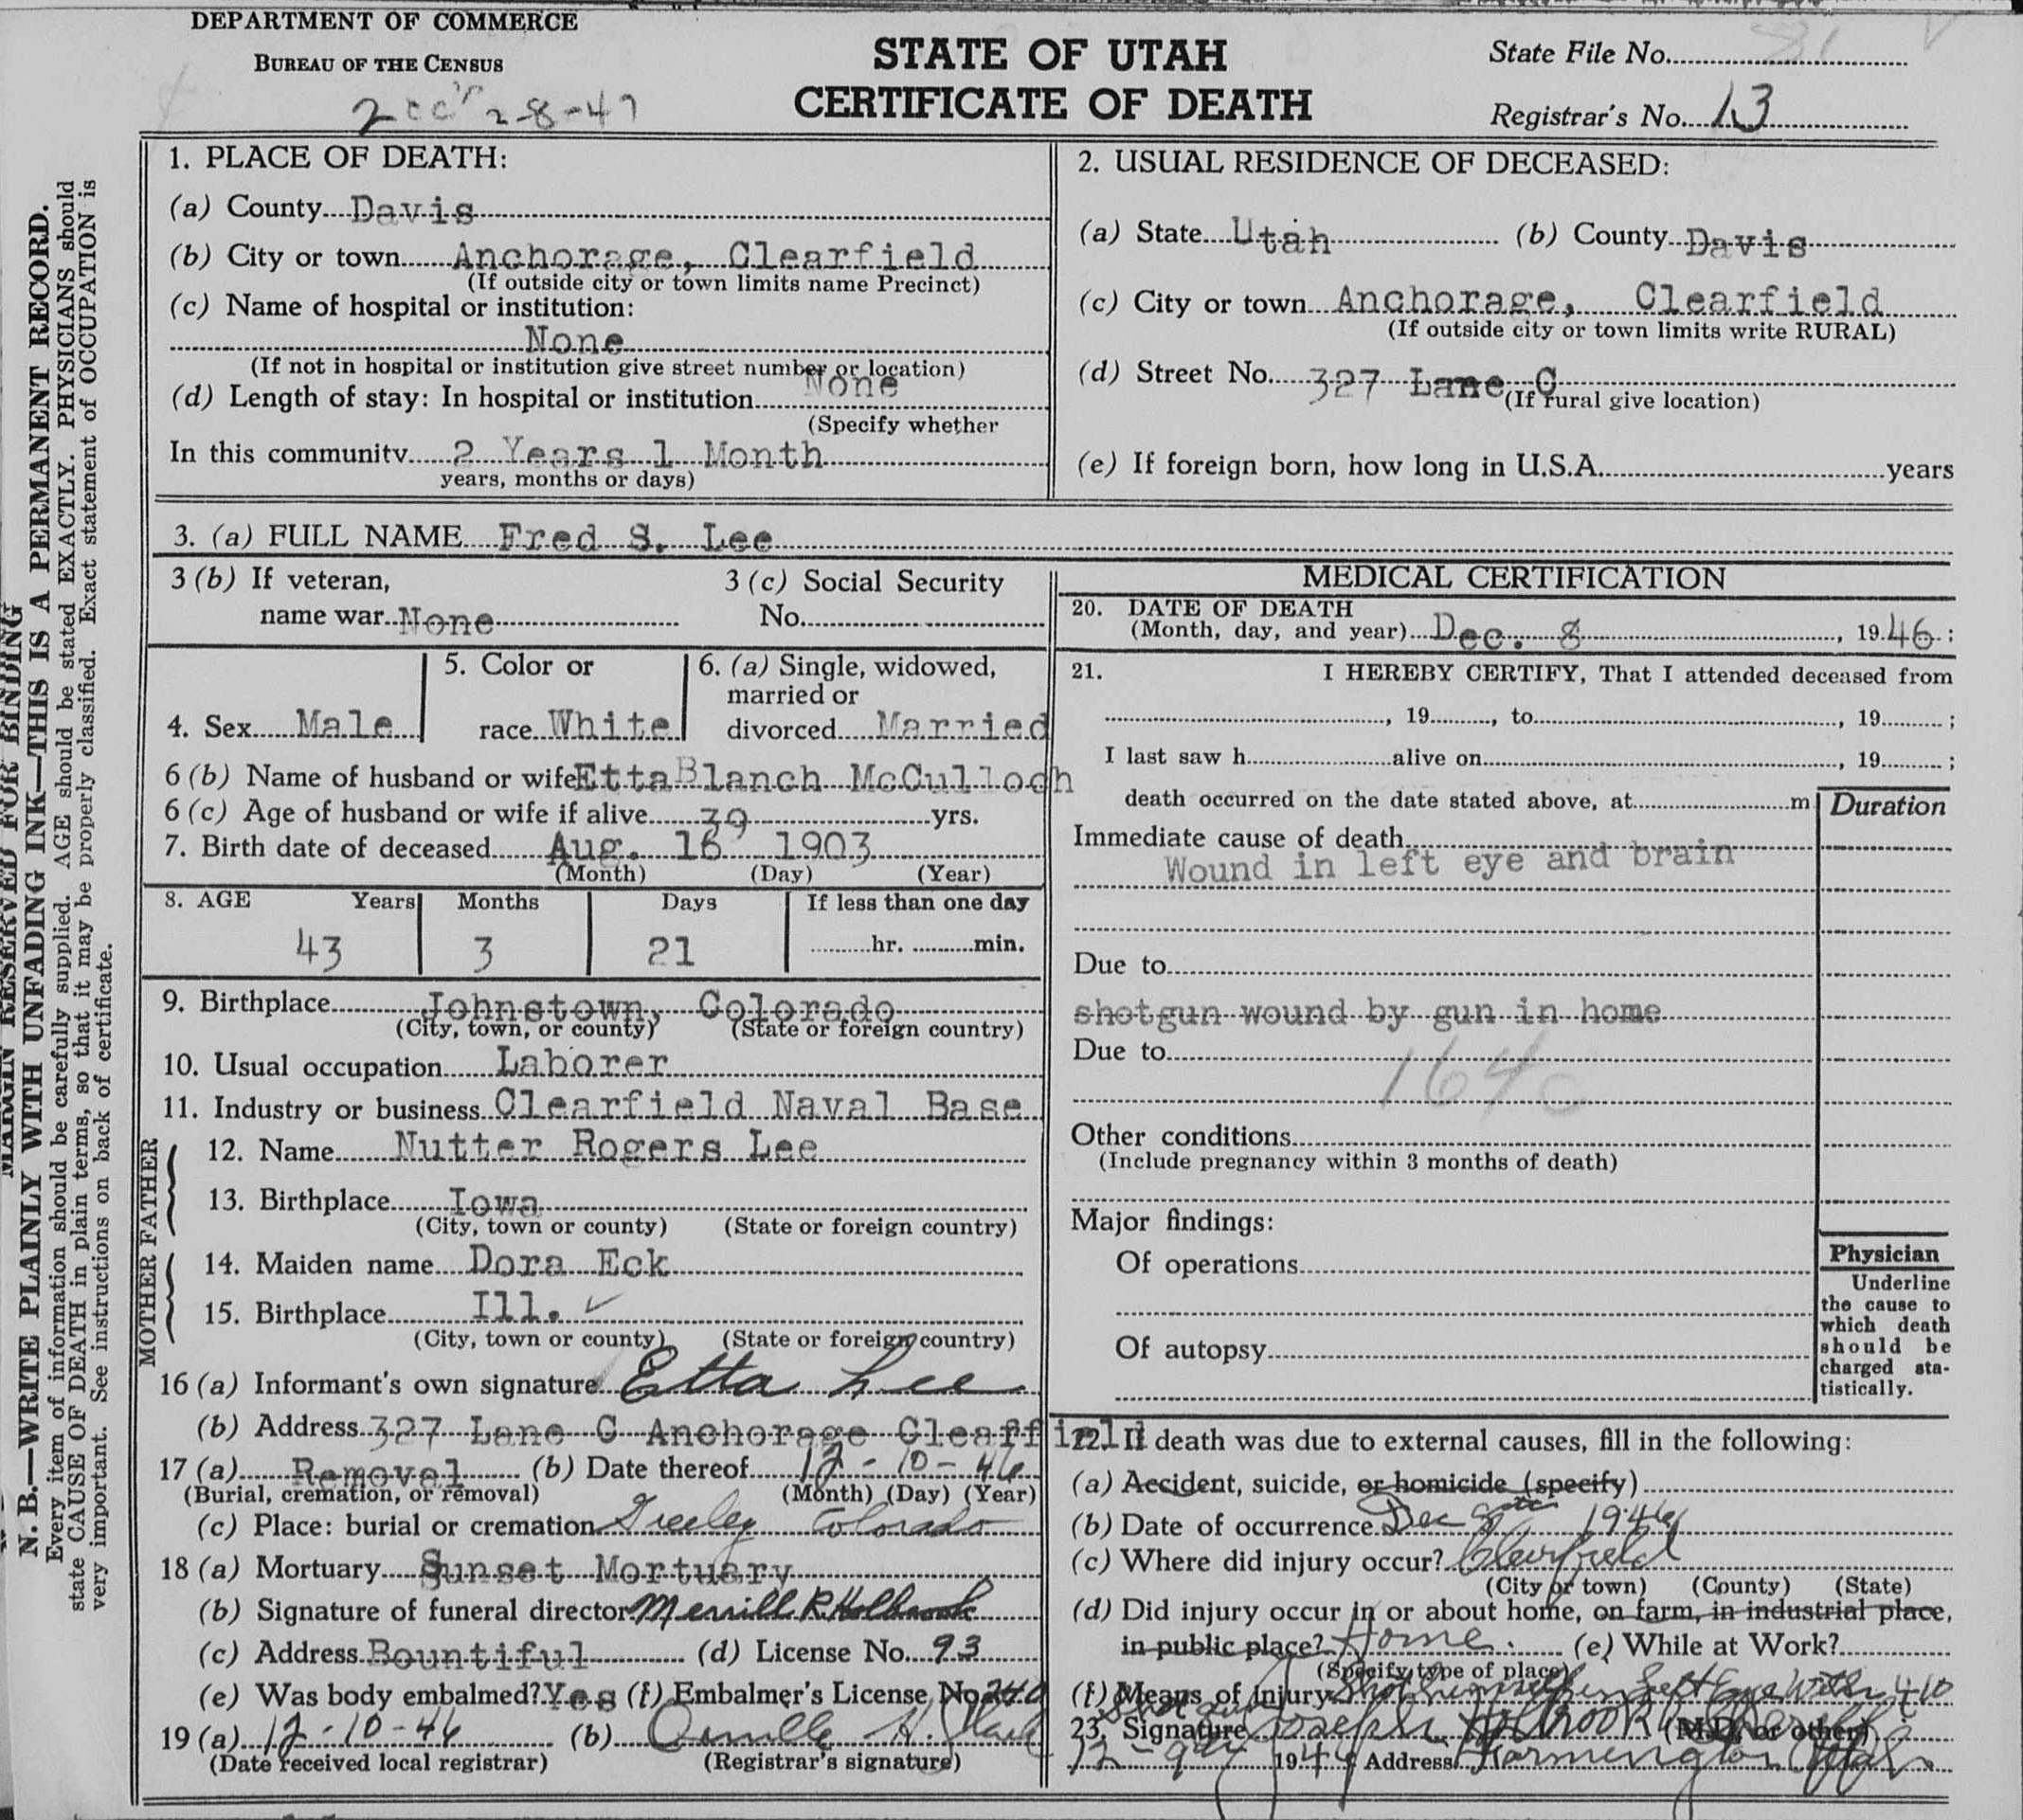 DEPARTMENT OF COMMERCE
BUREAU OF THE CENSUS
2-8-47
STATE OF UTAH
CERTIFICATE OF DEATH
State File No.
Registrar's No. 13
MARGIN RESERVED FOR BINDING
N. B.—WRITE PLAINLY WITH UNFADING INK—THIS IS A PERMANENT RECORD.
Every item of information should be carefully supplied. AGE should be stated EXACTLY. PHYSICIANS should
state CAUSE OF DEATH in plain terms, so that it may be properly classified. Exact statement of OCCUPATION is
very important. See instructions on back of certificate.
1. PLACE OF DEATH:
(a) County Davis
(b) City or town Anchorage, Clearfield
(If outside city or town limits name Precinct)
(c) Name of hospital or institution:
None
(If not in hospital or institution give street number or location)
(d) Length of stay: In hospital or institution None
(Specify whether
In this community 2 Years 1 Month
years, months or days)
2. USUAL RESIDENCE OF DECEASED:
(a) State Utah (b) County Davis
(c) City or town Anchorage, Clearfield
(If outside city or town limits write RURAL)
(d) Street No. 327 Lane C
(If rural give location)
(e) If foreign born, how long in U.S.A. years
3. (a) FULL NAME Fred S. Lee
3 (b) If veteran,
name war None
3 (c) Social Security
No.
4. Sex Male
5. Color or
race White
6. (a) Single, widowed,
married or
divorced Married
6 (b) Name of husband or wife Etta Blanch McCulloch
6 (c) Age of husband or wife if alive 39 yrs.
7. Birth date of deceased Aug. 16 1903
(Month) (Day) (Year)
8. AGE Years Months Days If less than one day
43 3 21 hr. min.
9. Birthplace Johnstown, Colorado
(City, town, or county) (State or foreign country)
10. Usual occupation Laborer
11. Industry or business Clearfield Naval Base
FATHER
12. Name Nutter Rogers Lee
13. Birthplace Iowa
(City, town or county) (State or foreign country)
MOTHER
14. Maiden name Dora Eck
15. Birthplace Ill. ✓
(City, town or county) (State or foreign country)
16 (a) Informant's own signature Etta Lee
(b) Address 327 Lane C Anchorage Cleaffield
17 (a) Removal (b) Date thereof 12-10-46
(Burial, cremation, or removal) (Month) (Day) (Year)
(c) Place: burial or cremation Greeley Colorado
18 (a) Mortuary Sunset Mortuary
(b) Signature of funeral director Merrill R. Holbrook
(c) Address Bountiful (d) License No. 93
(e) Was body embalmed? Yes (f) Embalmer's License No. 240
19 (a) 12-10-46 (b) H.
(Date received local registrar) (Registrar's signature)
MEDICAL CERTIFICATION
20. DATE OF DEATH
(Month, day, and year) Dec. 8, 1946;
21. I HEREBY CERTIFY, That I attended deceased from
, 19 , to , 19 ;
I last saw h alive on , 19 ;
death occurred on the date stated above, at m
Duration
Immediate cause of death
Wound in left eye and brain
Due to
shotgun wound by gun in home
Due to
164c
Other conditions
(Include pregnancy within 3 months of death)
Major findings:
Of operations
Of autopsy
Physician
Underline
the cause to
which death
should be
charged sta-
tistically.
22. If death was due to external causes, fill in the following:
(a) Accident, suicide, or homicide (specify)
(b) Date of occurrence Dec 8th 1946
(c) Where did injury occur? Clearfield
(City or town) (County) (State)
(d) Did injury occur in or about home, on farm, in industrial place,
in public place? Home (e) While at Work?
(Specify type of place)
(f) Means of Injury Shot himself in Left Eye with 410
Shot gun
23. Signature Joseph Holbrook (M.D. or other) Sheriff
12-9th 1946 Address Farmington Utah